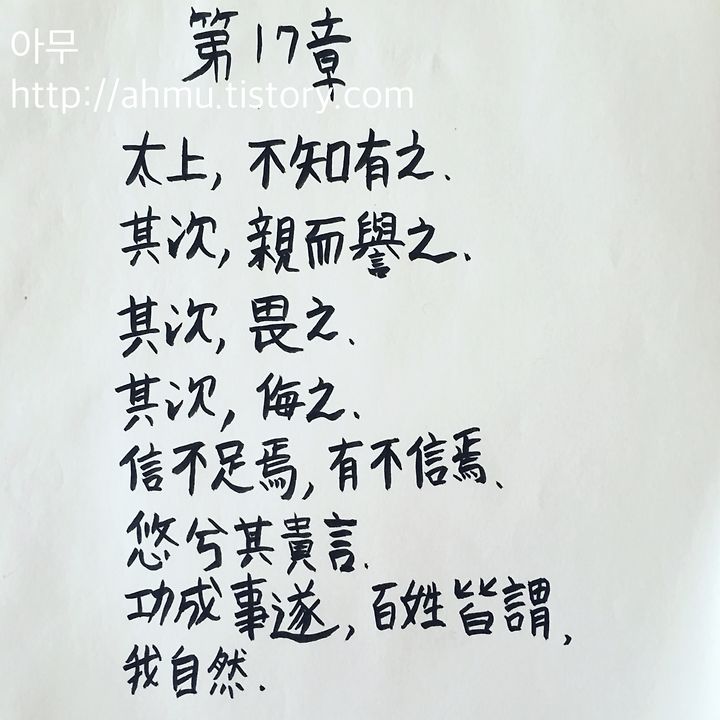 아무
http://ahmu.tistory.com
第17章
太上, 不知有之.
其次, 親而譽之.
其次, 畏之.
其次, 侮之.
信不足焉, 有不信焉.
悠兮其貴言.
功成事遂, 百姓皆謂,
我自然.